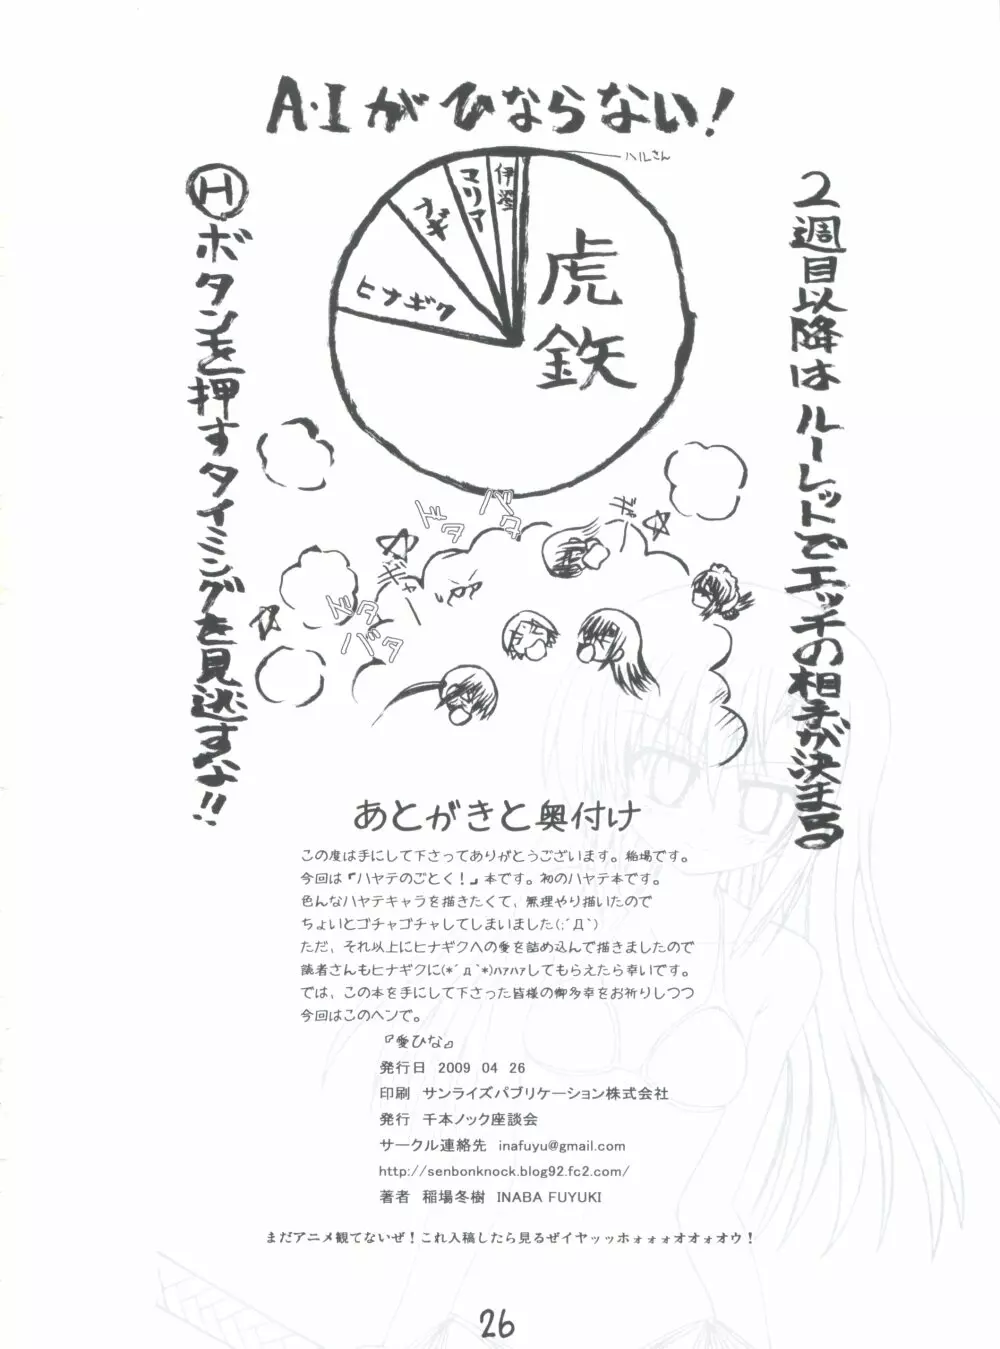 A・Iがひならない！
2週目以降はルーレットでエッチの相手が決まる
Ⓗボタンを押すタイミングを見逃すな!!
ハルさん
伊澄
マリア
ナギ
ヒナギク
虎鉄
バタ
ドタ
ギャー
ギャー
ドタ
バタ
あとがきと奥付け
この度は手にして下さってありがとうございます。稲場です。
今回は『ハヤテのごとく！』本です。初のハヤテ本です。
色んなハヤテキャラを描きたくて、無理やり描いたので
ちょいとゴチャゴチャしてしまいました(;´Д`)
ただ、それ以上にヒナギクへの愛を詰め込んで描きましたので
読者さんもヒナギクに(*´д`*)ﾊｧﾊｧしてもらえたら幸いです。
では、この本を手にして下さった皆様の御多幸をお祈りしつつ
今回はこのヘンで。
『愛ひな』
発行日 2009 04 26
印刷 サンライズパブリケーション株式会社
発行 千本ノック座談会
サークル連絡先 inafuyu@gmail.com
http://senbonknock.blog92.fc2.com/
著者 稲場冬樹 INABA FUYUKI
まだアニメ観てないぜ！これ入稿したら見るぜイヤッッホォォォオオォオウ！
26